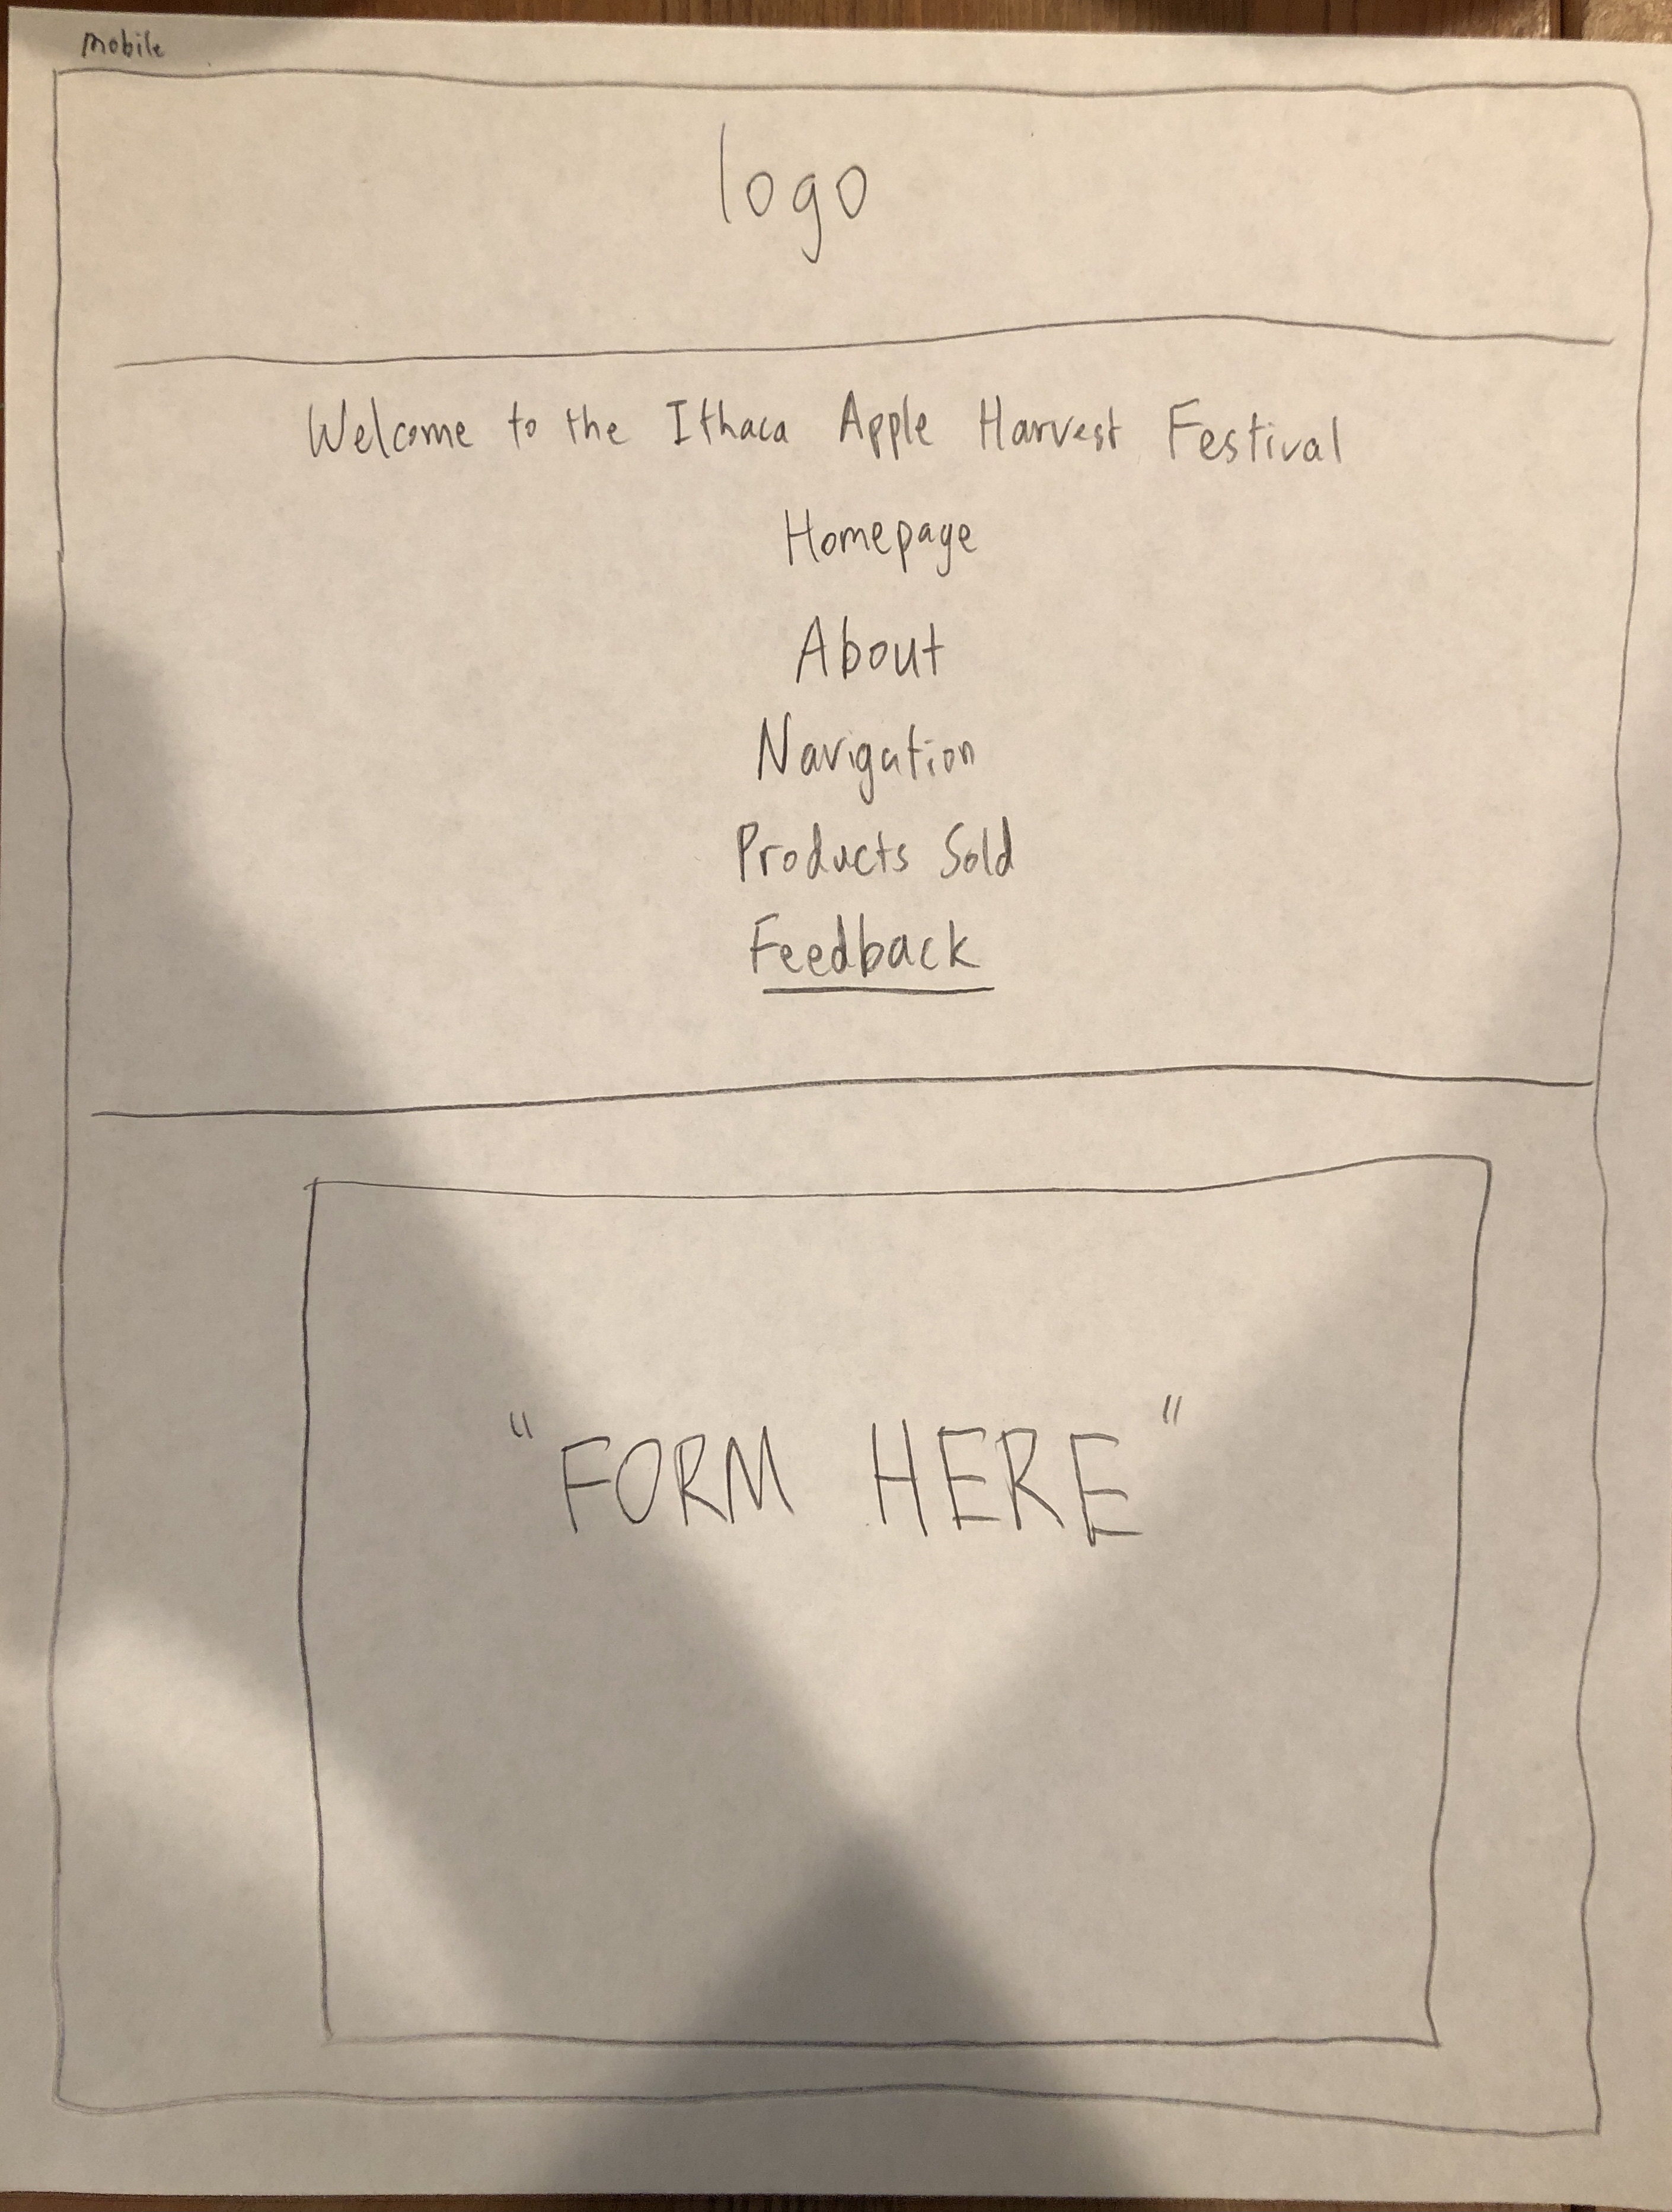 Mobile
logo
Welcome to the Ithaca Apple Harvest Festival
Homepage
About
Navigation
Products Sold
Feedback
"FORM HERE"